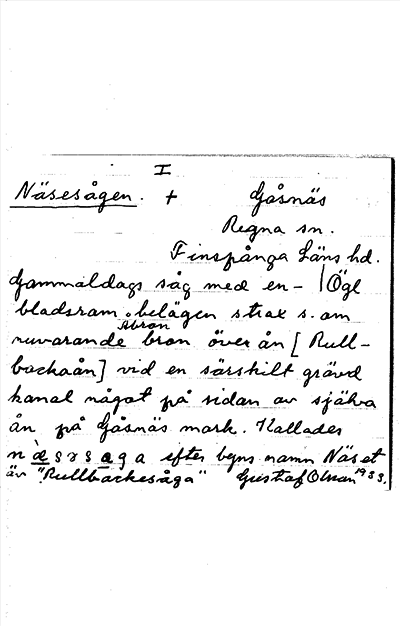 I
Näsesågen. + Gåsnäs
Regna sn.
Finspånga Läns hd.
Gammaldags såg med en- | Ögl
bladsram belägen strax s. om
åbron
nuvarande bron över ån [ Rull-
backaån] vid en särskilt grävd
kanal något på sidan av själva
ån på Gåsnäs mark. Kallades
efter byns namn Näset
äv "Rullbackesåga" Gustaf 1933.